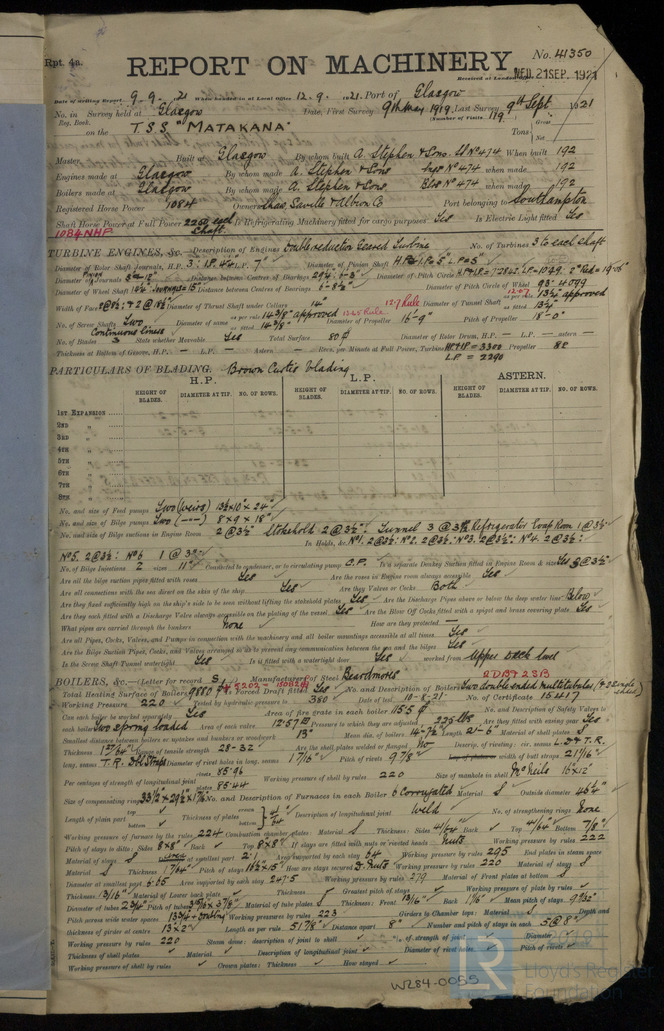 Rpt. 4a.
REPORT ON MACHINERY
No. 41350
Received at London Office WED. 21 SEP. 1921
Date of writing Report 9. 9. 21 When handed in at Local Office 12. 9. 1921. Port of Glasgow
No. in Survey held at Glasgow Date, First Survey 9th May 1919 Last Survey 9th Sept 1921
Reg. Book. (Number of Visits 119)
on the T.S.S. "MATAKANA" Tons Gross Net
Master Built at Glasgow By whom built A. Stephen & Sons. Yd No 474 When built 192
Engines made at Glasgow By whom made A. Stephen & Sons Eng No 474 when made 192
Boilers made at Glasgow By whom made A. Stephen & Sons Blr No 474 when made 192
Registered Horse Power 1084 Owners Shaw, Savill & Albion Co Port belonging to Southampton
Shaft Horse Power at Full Power 2250 each shaft. Is Refrigerating Machinery fitted for cargo purposes Yes Is Electric Light fitted Yes
1084 NHP
TURBINE ENGINES, &c.—Description of Engines Double reduction Geared Turbine No. of Turbines 3 to each shaft
Diameter of Rotor Shaft Journals, H.P. L.P. 7" Diameter of Pinion Shaft
Diameter of Journals Distance between Centres of Bearings Diameter of Pitch Circle
Diameter of Wheel Shaft Distance between Centres of Bearings 6'-8½" Diameter of Pitch Circle of Wheel
Width of Face Diameter of Thrust Shaft under Collars 14" Diameter of Tunnel Shaft as per rule 12.07 as fitted 13½" approved
No. of Screw Shafts Two Diameter of same as per rule 14 3/8" approved as fitted 14 3/8" Diameter of Propeller 16'-9" Pitch of Propeller 18'-0"
Continuous liners
No. of Blades 3 State whether Moveable Yes Total Surface 80 Diameter of Rotor Drum, H.P. — L.P. — Astern —
Thickness at Bottom of Groove, H.P. — L.P. — Astern — Revs. per Minute at Full Power, Turbine H.P.&I.P. = 3300 Propeller 88
L.P. = 2290
PARTICULARS OF BLADING. Brown Curtis blading
H.P. L.P. ASTERN.
HEIGHT OF BLADES. DIAMETER AT TIP. NO. OF ROWS. HEIGHT OF BLADES. DIAMETER AT TIP. NO. OF ROWS. HEIGHT OF BLADES. DIAMETER AT TIP. NO. OF ROWS.
1ST EXPANSION
2ND "
3RD "
4TH "
5TH "
6TH "
7TH "
8TH "
No. and size of Feed pumps Two (Weirs) 13½ x 10" x 24"
No. and size of Bilge pumps Two 8 x 9 x 18"
No. and size of Bilge suctions in Engine Room 2 @ 3½" Stokehold 2 @ 3½". Tunnel 3 @ 3½" Refrigerator Room 1 @ 3½"
In Holds, &c. No 1. 2 @ 3½". No 2. 2 @ 3½". No 3. 2 @ 3½". No 4. 2 @ 3½".
No 5. 2 @ 3½": No 6 1 @ 3½"
No. of Bilge Injections 2 sizes 11" Connected to condenser, or to circulating pump C.P. Is a separate Donkey Suction fitted in Engine Room & size Yes @ 3½"
Are all the bilge suction pipes fitted with roses Yes Are the roses in Engine room always accessible Yes
Are all connections with the sea direct on the skin of the ship Yes Are they Valves or Cocks Both
Are they fixed sufficiently high on the ship's side to be seen without lifting the stokehold plates Yes Are the Discharge Pipes above or below the deep water line Below
Are they each fitted with a Discharge Valve always accessible on the plating of the vessel Yes Are the Blow Off Cocks fitted with a spigot and brass covering plate Yes
What pipes are carried through the bunkers None How are they protected —
Are all Pipes, Cocks, Valves, and Pumps in connection with the machinery and all boiler mountings accessible at all times Yes
Are the Bilge Suction Pipes, Cocks, and Valves arranged so as to prevent any communication between the sea and the bilges Yes
Is the Screw Shaft Tunnel watertight Yes Is it fitted with a watertight door Yes worked from Upper deck level
BOILERS, &c.—(Letter for record S) Manufacturers of Steel Beardmores
2DB & 2SB
Total Heating Surface of Boilers 9880 Is Forced Draft fitted Yes No. and Description of Boilers Two double ended multitubular (& 2 single ended)
Working Pressure 220 Tested by hydraulic pressure to 380 Date of test 10-8-21. No. of Certificate 15417
Can each boiler be worked separately Yes Area of fire grate in each boiler 115.5 No. and Description of Safety Valves to
each boiler Two spring loaded Area of each valve 12.57 Pressure to which they are adjusted 225 lbs Are they fitted with easing gear Yes
Smallest distance between boilers or uptakes and bunkers or woodwork 13" Mean dia. of boilers 14'-7½" Length 21'-6" Material of shell plates S
Thickness 1 27/64" Range of tensile strength 28-32 Are the shell plates welded or flanged No Descrip. of riveting: cir. seams L.D & T.R.
long. seams T.R. D.B. Straps Diameter of rivet holes in long. seams 1 7/16" Pitch of rivets 9 7/8" width of butt straps 21 7/16"
Per centages of strength of longitudinal joint rivets 85.96 plates 85.44 Working pressure of shell by rules 220 Size of manhole in shell McNeils 16" x 12"
Size of compensating ring 33½ x 29½ x 1 7/16 No. and Description of Furnaces in each Boiler 6 Corrugated Material S Outside diameter 46¼"
Length of plain part top bottom Thickness of plates crown bottom Description of longitudinal joint Weld No. of strengthening rings None
Working pressure of furnace by the rules 224 Combustion chamber plates: Material S Thickness: Sides 41/64 Back Top 41/64 Bottom 7/8"
Pitch of stays to ditto: Sides 8 x 8" Back Top 8 x 8" If stays are fitted with nuts or riveted heads Nuts Working pressure by rules 222
Material of stays S at smallest part Area supported by each stay 64 Working pressure by rules 295 End plates in steam space
Material S Thickness 1 7/64" Pitch of stays 16½ x 15" How are stays secured D. Nuts Working pressure by rules 220 Material of stays S
Diameter at smallest part 6.65 Area supported by each stay 247.5 Working pressure by rules 279 Material of Front plates at bottom S
Thickness 13/16" Material of Lower back plate Thickness Greatest pitch of stays Working pressure of plate by rules
Diameter of tubes 2¾" Pitch of tubes 3 15/16 x 3 7/8" Material of tube plates S Thickness: Front 13/16 Back 1 1/16" Mean pitch of stays 9 9/32"
Pitch across wide water spaces 13¾" Working pressures by rules 223 Girders to Chamber tops: Material S Depth and
thickness of girder at centre 13 x 2" Length as per rule 51 7/8" Distance apart 8" Number and pitch of stays in each 5 @ 8"
Working pressure by rules 220 Steam dome: description of joint to shell % of strength of joint Diameter
Thickness of shell plates Material Description of longitudinal joint Diameter of rivet holes Pitch of rivets
Working pressure of shell by rules Crown plates: Thickness How stayed
W284-0055
Lloyd's Register
Foundation